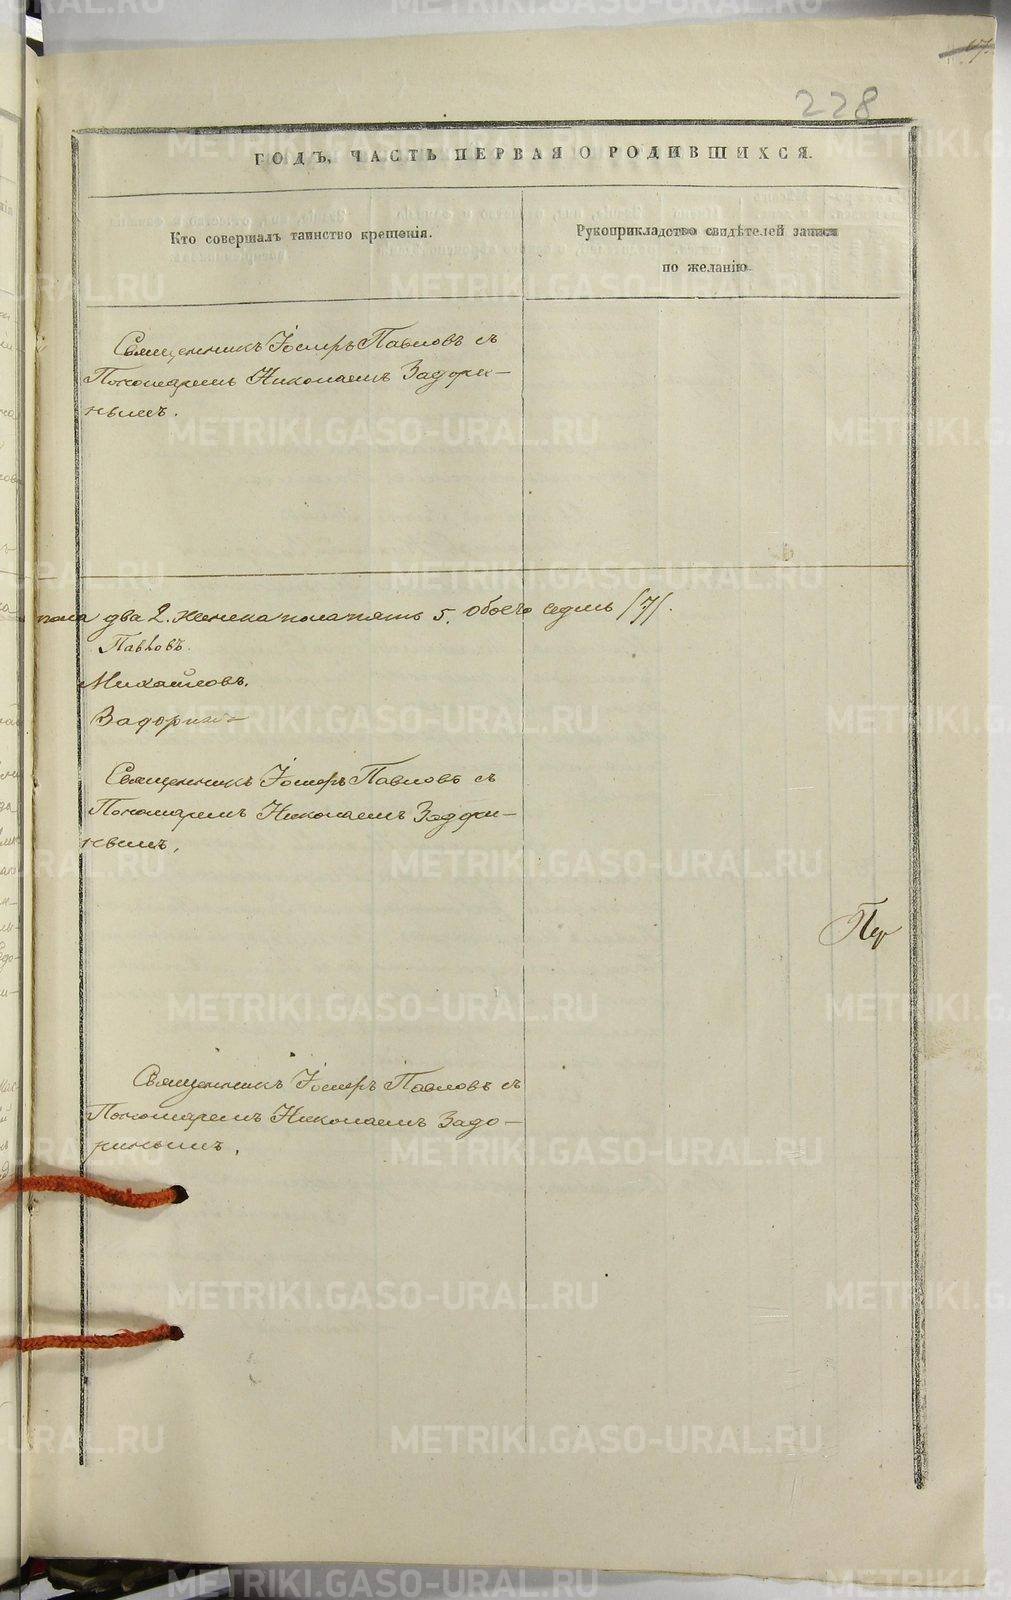 228
ГОДЪ, ЧАСТЬ ПЕРВАЯ О РОДИВШИХСЯ.
Кто совершалъ таинство крещенія.
Рукоприкладство свидѣтелей записи
по желанію.
Священникъ Іосифъ Павловъ съ
Пономаремъ Николаемъ Задори-
нымъ.
пола два 2. женска пола пять 5. обоего седмь /7/.
Павловъ.
Михайловъ.
Задоринъ
Священникъ Іосифъ Павловъ съ
Пономаремъ Николаемъ Задори-
нымъ.
Священникъ Іосифъ Павловъ съ
Пономаремъ Николаемъ Задо-
ринымъ.
METRIKI.GASO-URAL.RU